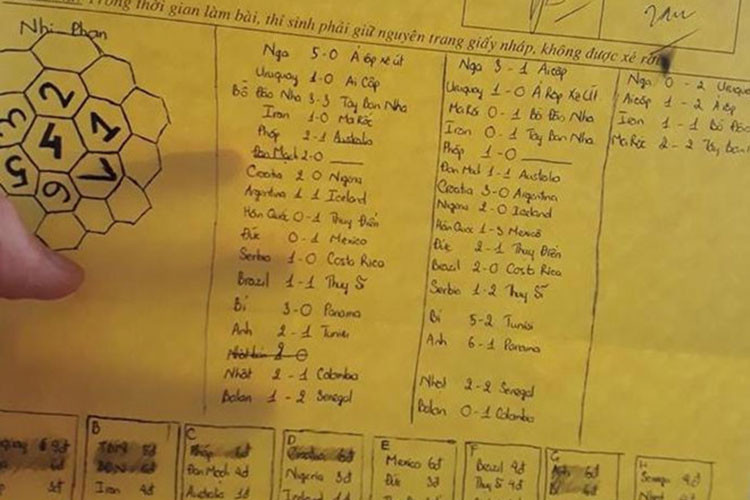 Trong thời gian làm bài, thí sinh phải giữ nguyên trang giấy nháp, không được xé rời
Nhị Phạn
2
3
1
4
5
1
6
Nga 5-0 Ả ập xê út
Uruguay 1-0 Ai Cập
Bồ Đào Nha 3-3 Tây Ban Nha
Iran 1-0 Ma Rốc
Pháp 2-1 Australia
Đan Mạch 2-0
Croatia 2 0 Nigeria
Argentina 1 1 Iceland
Hàn Quốc 0-1 Thụy Điển
Đức 0-1 Mexico
Serbia 1-0 Costa Rica
Brazil 1-1 Thụy Sĩ
Bỉ 3-0 Panama
Anh 2-1 Tunisi
Nhật 2-1 Colombia
Balan 1-2 Senegal
Nga 3-1 Ai cập
Uruguay 1-0 Ả Rập Xê Út
Ma Rốc 0-1 Bồ Đào Nha
Iran 0-1 Tây Ban Nha
Pháp 1-0
Đan Mạch 1-1 Australia
Croatia 3-0 Argentina
Nigeria 2-0 Iceland
Hàn Quốc 1-3 Mexico
Đức 2-1 Thụy Điển
Brazil 2-0 Costa Rica
Serbia 1-2 Thụy Sĩ
Bỉ 5-2 Tunisi
Anh 6-1 Panama
Nhật 2-2 Senegal
Balan 0-1 Colombia
Nga 0-2 Urugua
Ai cập 1-2 Ả
Iran 1-1 Bồ Đào
Ma Rốc 2-2 Tây Ban
guay 9đ
3đ
B
TBN 5đ
BĐN 5đ
Iran 4đ
C
Pháp
Đan Mạch 4đ
Australia 1đ
D
Croatia 6đ
Nigeria 3đ
E
Mexico 6đ
Đức 3đ
F
Brazil 4đ
Thụy Sĩ 4đ
G
Anh 6đ
Bỉ
H
Senegal 4đ
Nhật